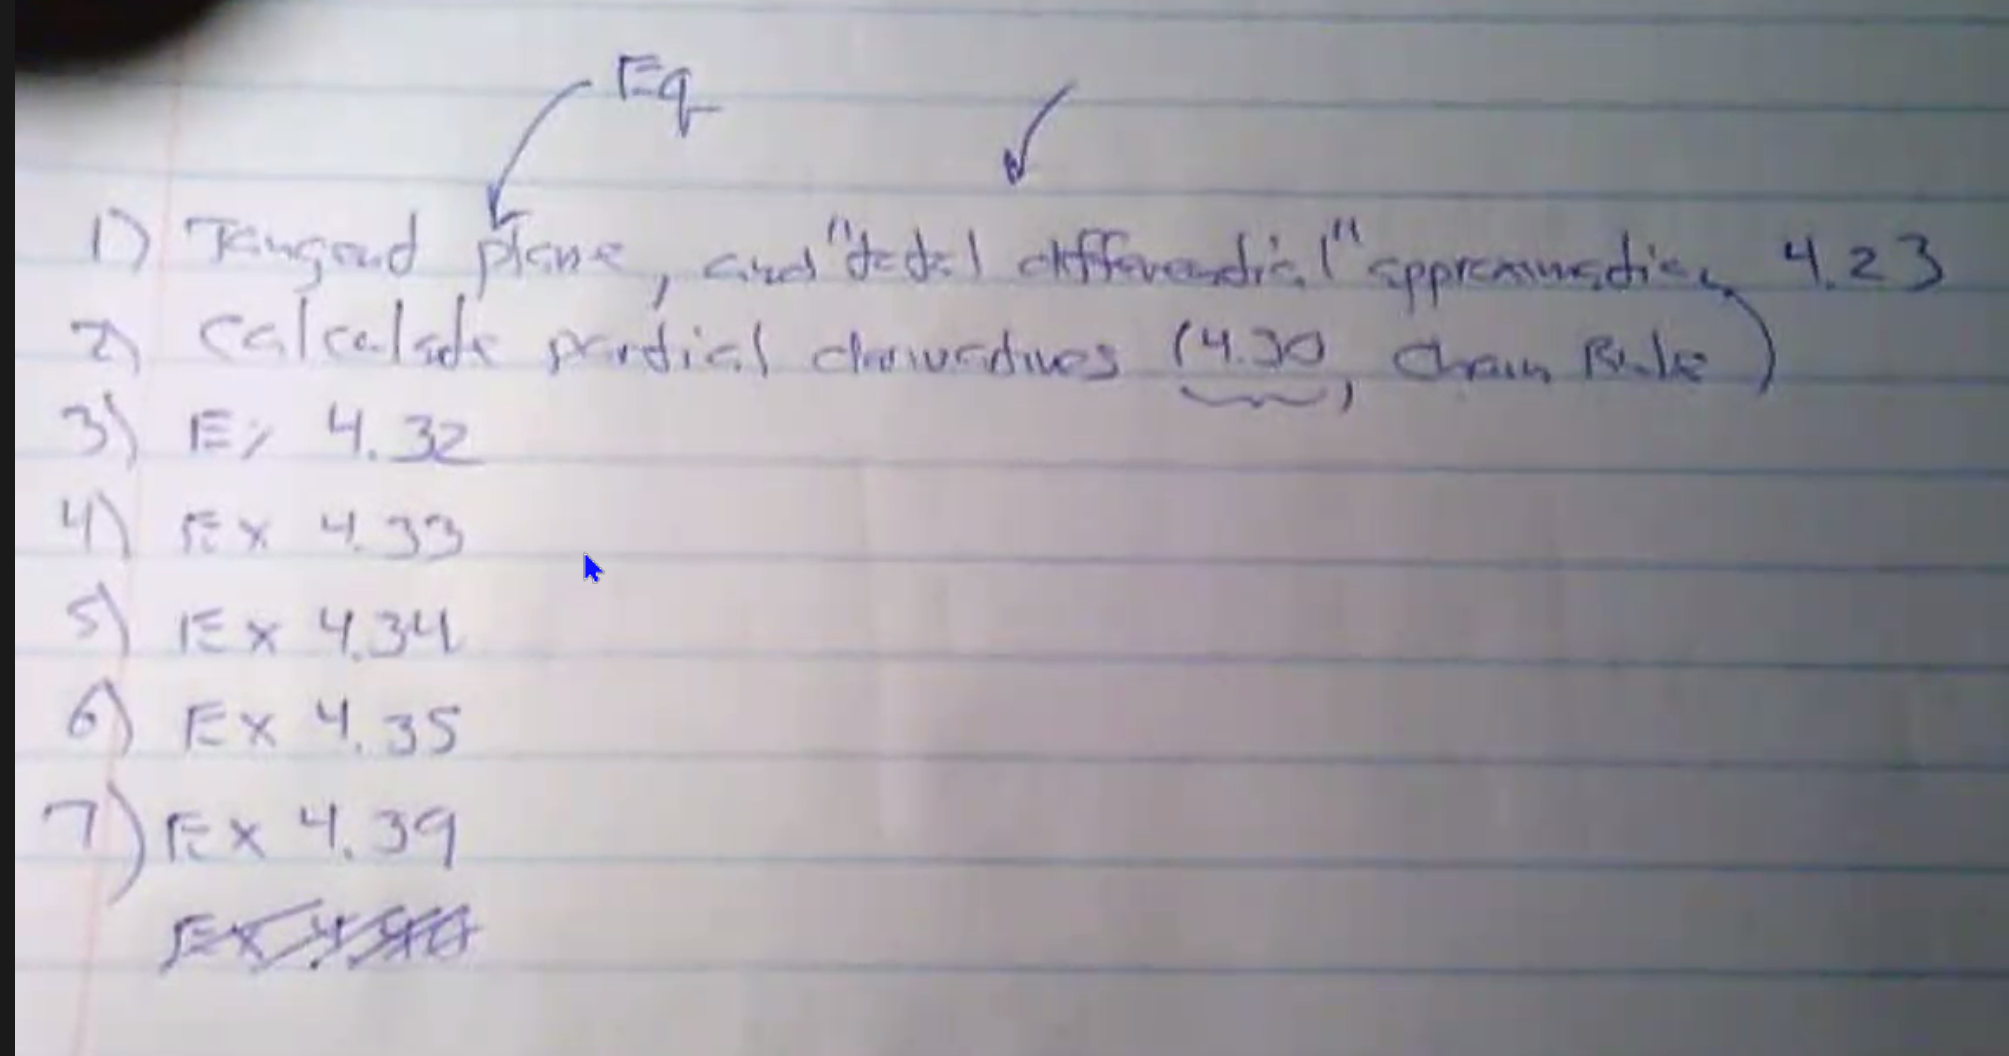 Eq
1) Tangent plane, and "total differential" approximation 4.23
2) Calculate partial derivatives (4.30, Chain Rule)
3) Ex 4.32
4) Ex 4.33
5) Ex 4.34
6) Ex 4.35
7) Ex 4.39